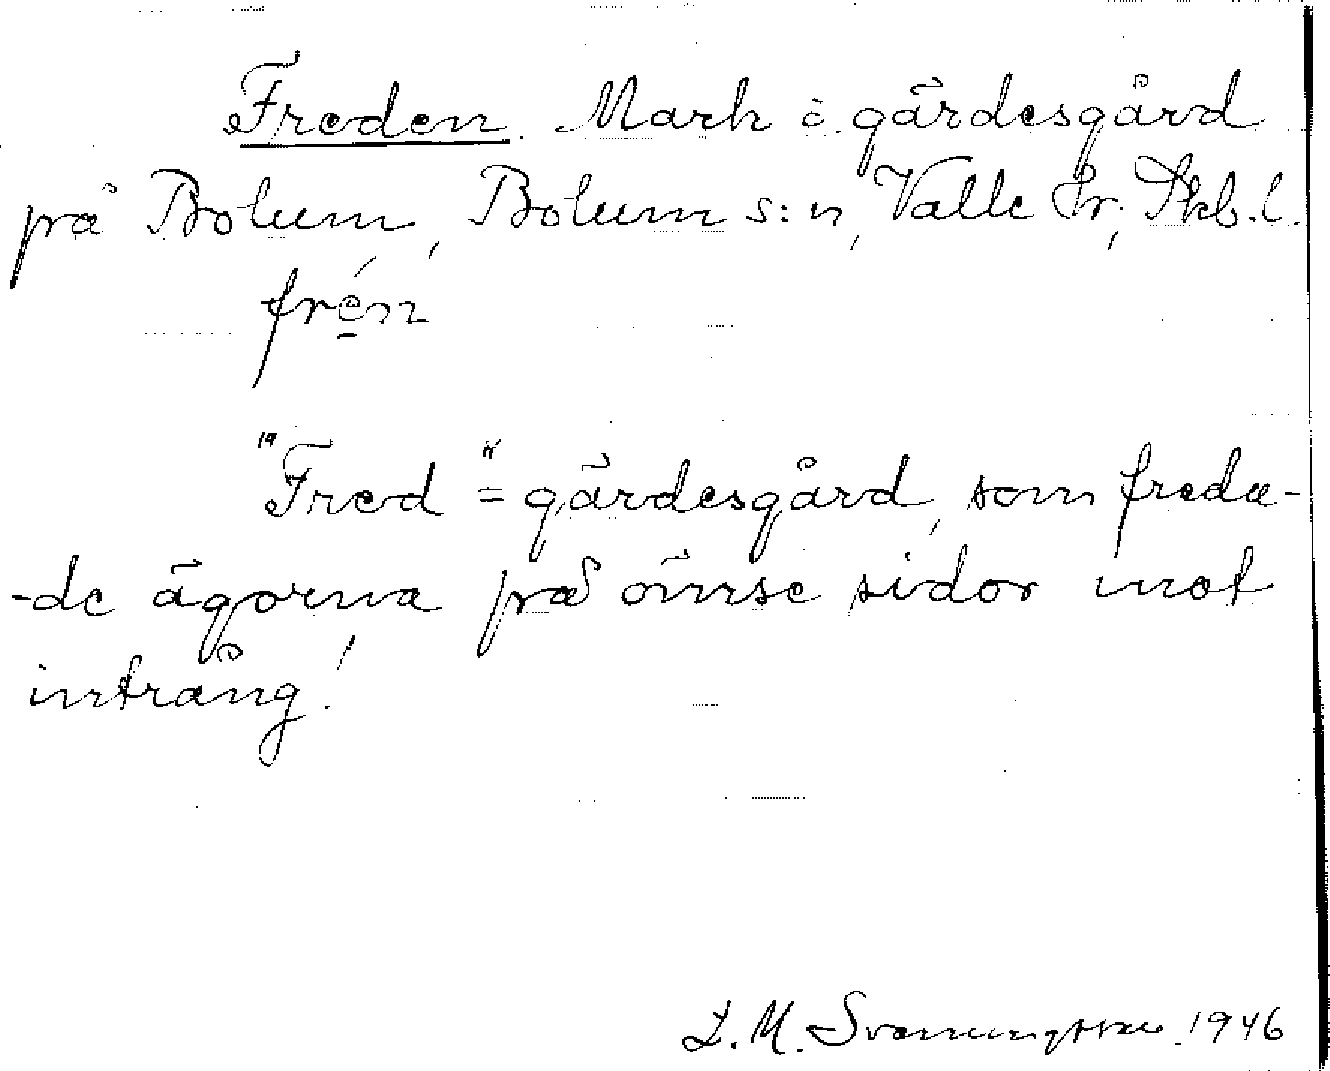 Freden. Mark o. gärdesgård
på Bolum, Bolum s:n, Valle hr, Skb.l.
frén
"Fred" = gärdesgård, som freda-
-de ägorna på ömse sidor mot
intrång!
L. M. Svenungsson 1946